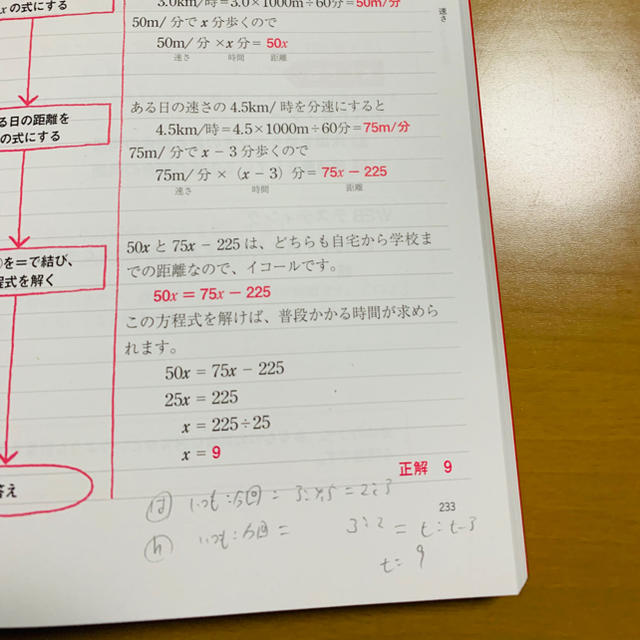 xの式にする
3.0km/時=3.0×1000m÷60分=50m/分
50m/分でx分歩くので
50m/分×x分=50x
速さ 時間 距離
速さ
ある日の速さの4.5km/時を分速にすると
4.5km/時=4.5×1000m÷60分=75m/分
75m/分でx-3分歩くので
75m/分×(x-3)分=75x-225
速さ 時間 距離
る日の距離を
の式にする
50xと75x-225は、どちらも自宅から学校ま
での距離なので、イコールです。
50x=75x-225
この方程式を解けば、普段かかる時間が求めら
れます。
を=で結び、
程式を解く
50x=75x-225
25x=225
x=225÷25
x=9
答え
正解 9
233
は いつも:今回=3:4.5=2:3
h いつも:今回= 3:2=t:t-3
t=9